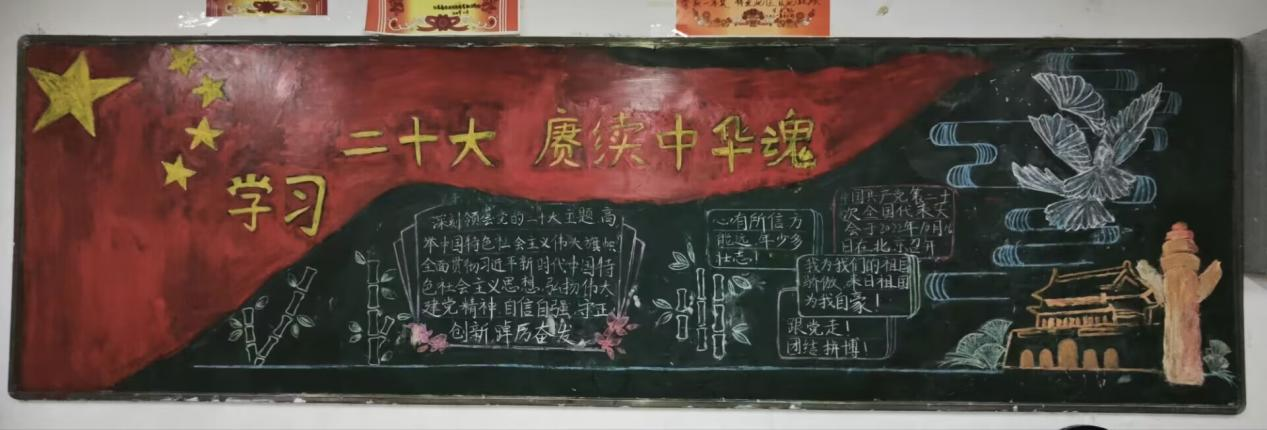 学习
二十大 赓续中华魂
深刻领会党的二十大主题 高
举中国特色社会主义伟大旗帜
全面贯彻习近平新时代中国特
色社会主义思想,弘扬伟大
建党精神,自信自强、守正
创新,踔厉奋发
心有所信 方
能远 年少多
壮志!
中国共产党第二十
次全国代表大
会于2022年10月16
日在北京召开
我为我们的祖国
骄傲,来日祖国
为我自豪!
跟党走!
团结拼搏!